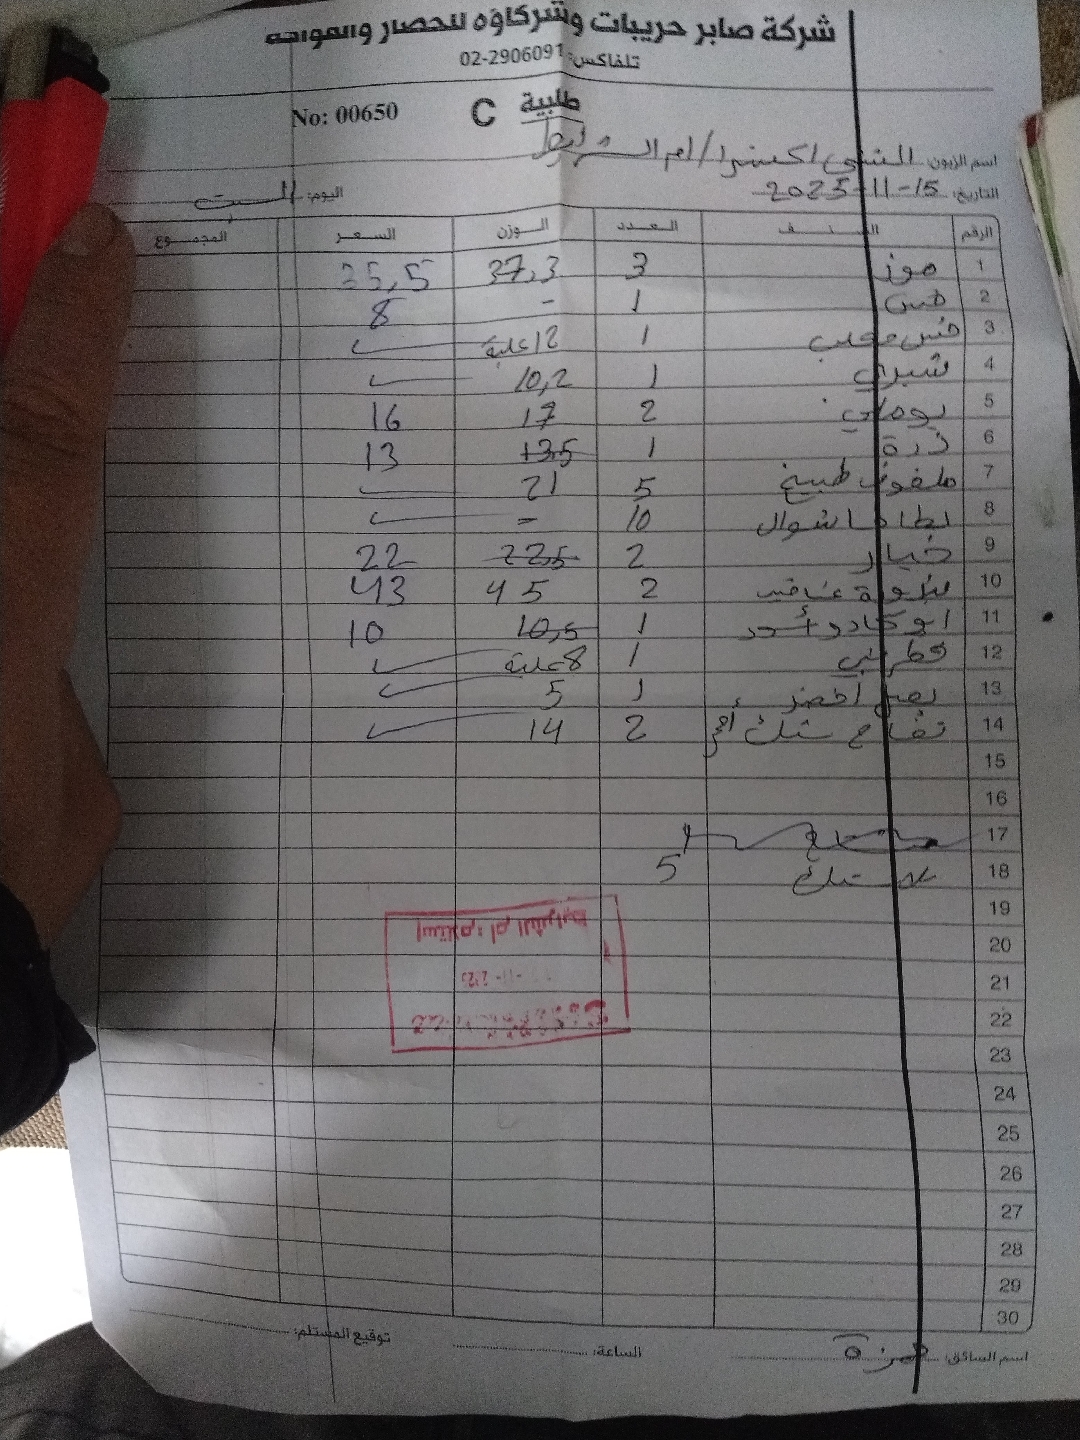 شركة صابر حريبات وشركاؤه للخضار والفواكه
تلفاكس: 02-2906091
طلبية C No: 00650
اسم الزبون: الشني اكسترا / ام الشرايط
التاريخ: 15-11-2025 اليوم: السبت
الرقم الصنف العدد الوزن السعر المجموع
1 موز 3 37,3 35,5
2 خس 1 - 8
3 خس معلب 1 12 علبة ✓
4 1 10,2 ✓
5 بوملي 2 17 16
6 ذرة 1 13,5 13
7 ملفوف طبيخ 5 21 ✓
8 بطاطا شوال 10 - ✓
9 خيار 2 22,5 22
10 بندورة عناقيد 2 45 43
11 افوكادو 1 10,5 10
12 فطر 1 8 علبة ✓
13 بصل اخضر 1 5 ✓
14 تفاح ستك أحمر 2 14 ✓
15
16
17
18 بلاستيك 5
19
20
21
22
23
24
25
26
27
28
29
30
استلام: ام الشرايط
اسم السائق: حمزة الساعة: توقيع المستلم: